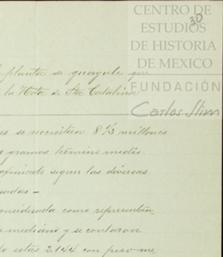 CENTRO DE
ESTUDIOS
DE HISTORIA
DE MÉXICO
FUNDACIÓN
Carlos Slim
30
planta se guayule que
la Hda de Sta Catalina
es se necesitan 8 1/3 millones
gramos término medio
según las diversas
considerada como representan
mediano y se contaron
do estas 2.144 con peso me